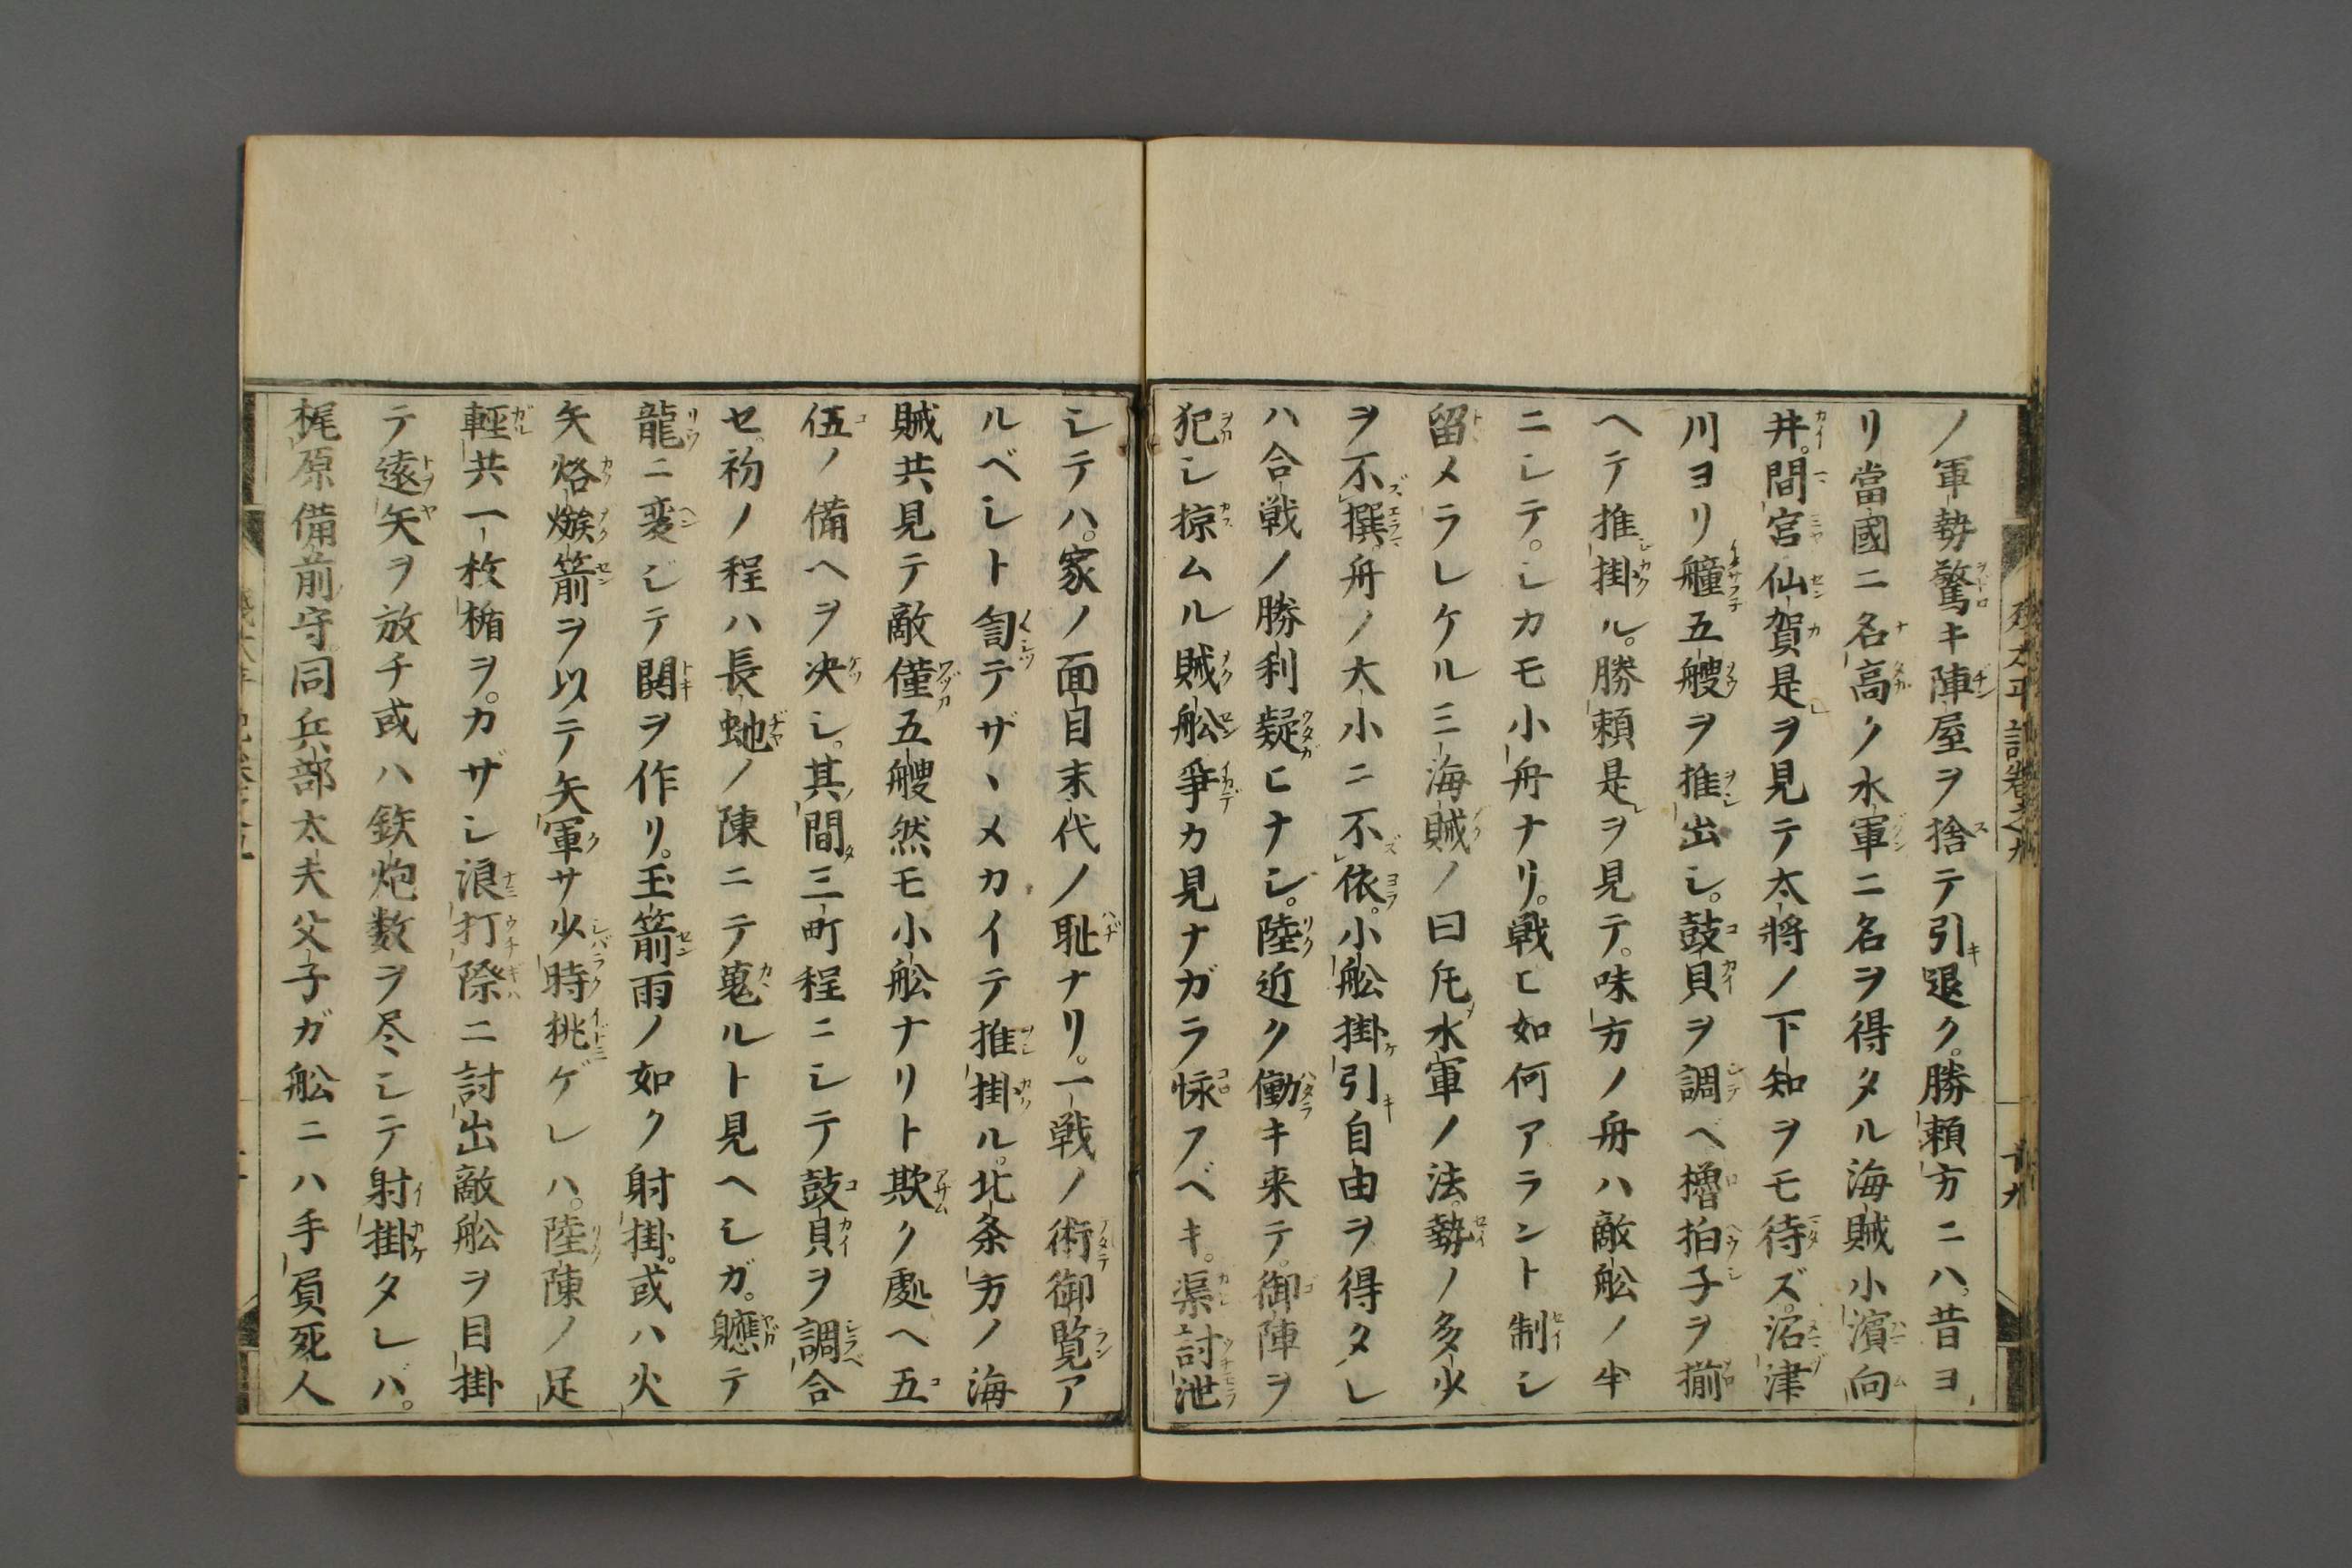 ノ軍勢驚キ陣屋ヲ捨テ引退ク。勝頼方ニハ。昔ヨ
リ當國ニ名高ク水軍ニ名ヲ得タル海賊小濱向
井。間宮仙賀是ヲ見テ太将ノ下知ヲモ待ズ。沼津
川ヨリ艟五艘ヲ推出シ。鼓貝ヲ調ベ櫓拍子ヲ揃
ヘテ推掛ル。勝頼是ヲ見テ。味方ノ舟ハ敵舩ノ半
ニシテ。シカモ小舟ナリ。戦ヒ如何アラント制シ
留メラレケル三海賊ノ曰凡水軍ノ法。勢ノ多少
ヲ不撰。舟ノ大小ニ不依。小舩掛引自由ヲ得タレ
ハ合戦ノ勝利疑ヒナシ。陸近ク働キ来テ。御陣ヲ
犯シ掠ムル賊舩爭カ見ナガラ怺フベキ。渠討泄
シテハ。家ノ面目末代ノ耻ナリ。一戦ノ術御覧ア
ルベシト訇テザヽメカイテ推掛ル。北条方ノ海
賊共見テ敵僅五艘然モ小舩ナリト欺ク處ヘ五
伍ノ備ヘヲ决シ。其間三町程ニシテ鼓貝ヲ調合
セ。初ノ程ハ長虵ノ陳ニテ蒐ルト見ヘシガ。軈テ
龍ニ変ジテ鬨ヲ作リ。玉箭雨ノ如ク射掛。或ハ火
矢烙熮箭ヲ以テ矢軍サ少時挑ゲレハ。陸陳ノ足
輕共一枚楯ヲ。カザシ浪打際ニ討出敵舩ヲ目掛
テ遠矢ヲ放チ或ハ鉄炮数ヲ尽シテ射掛タレバ。
梶原備前守。同兵部太夫父子ガ舩ニハ手負死人